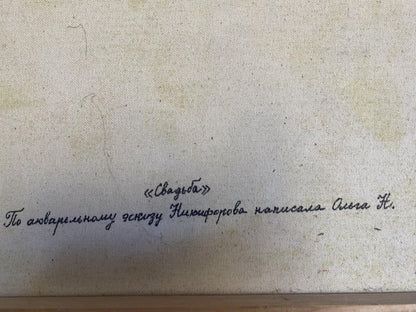 «Свадьба»
По акварельному эскизу Никифорова написала Ольга Н.